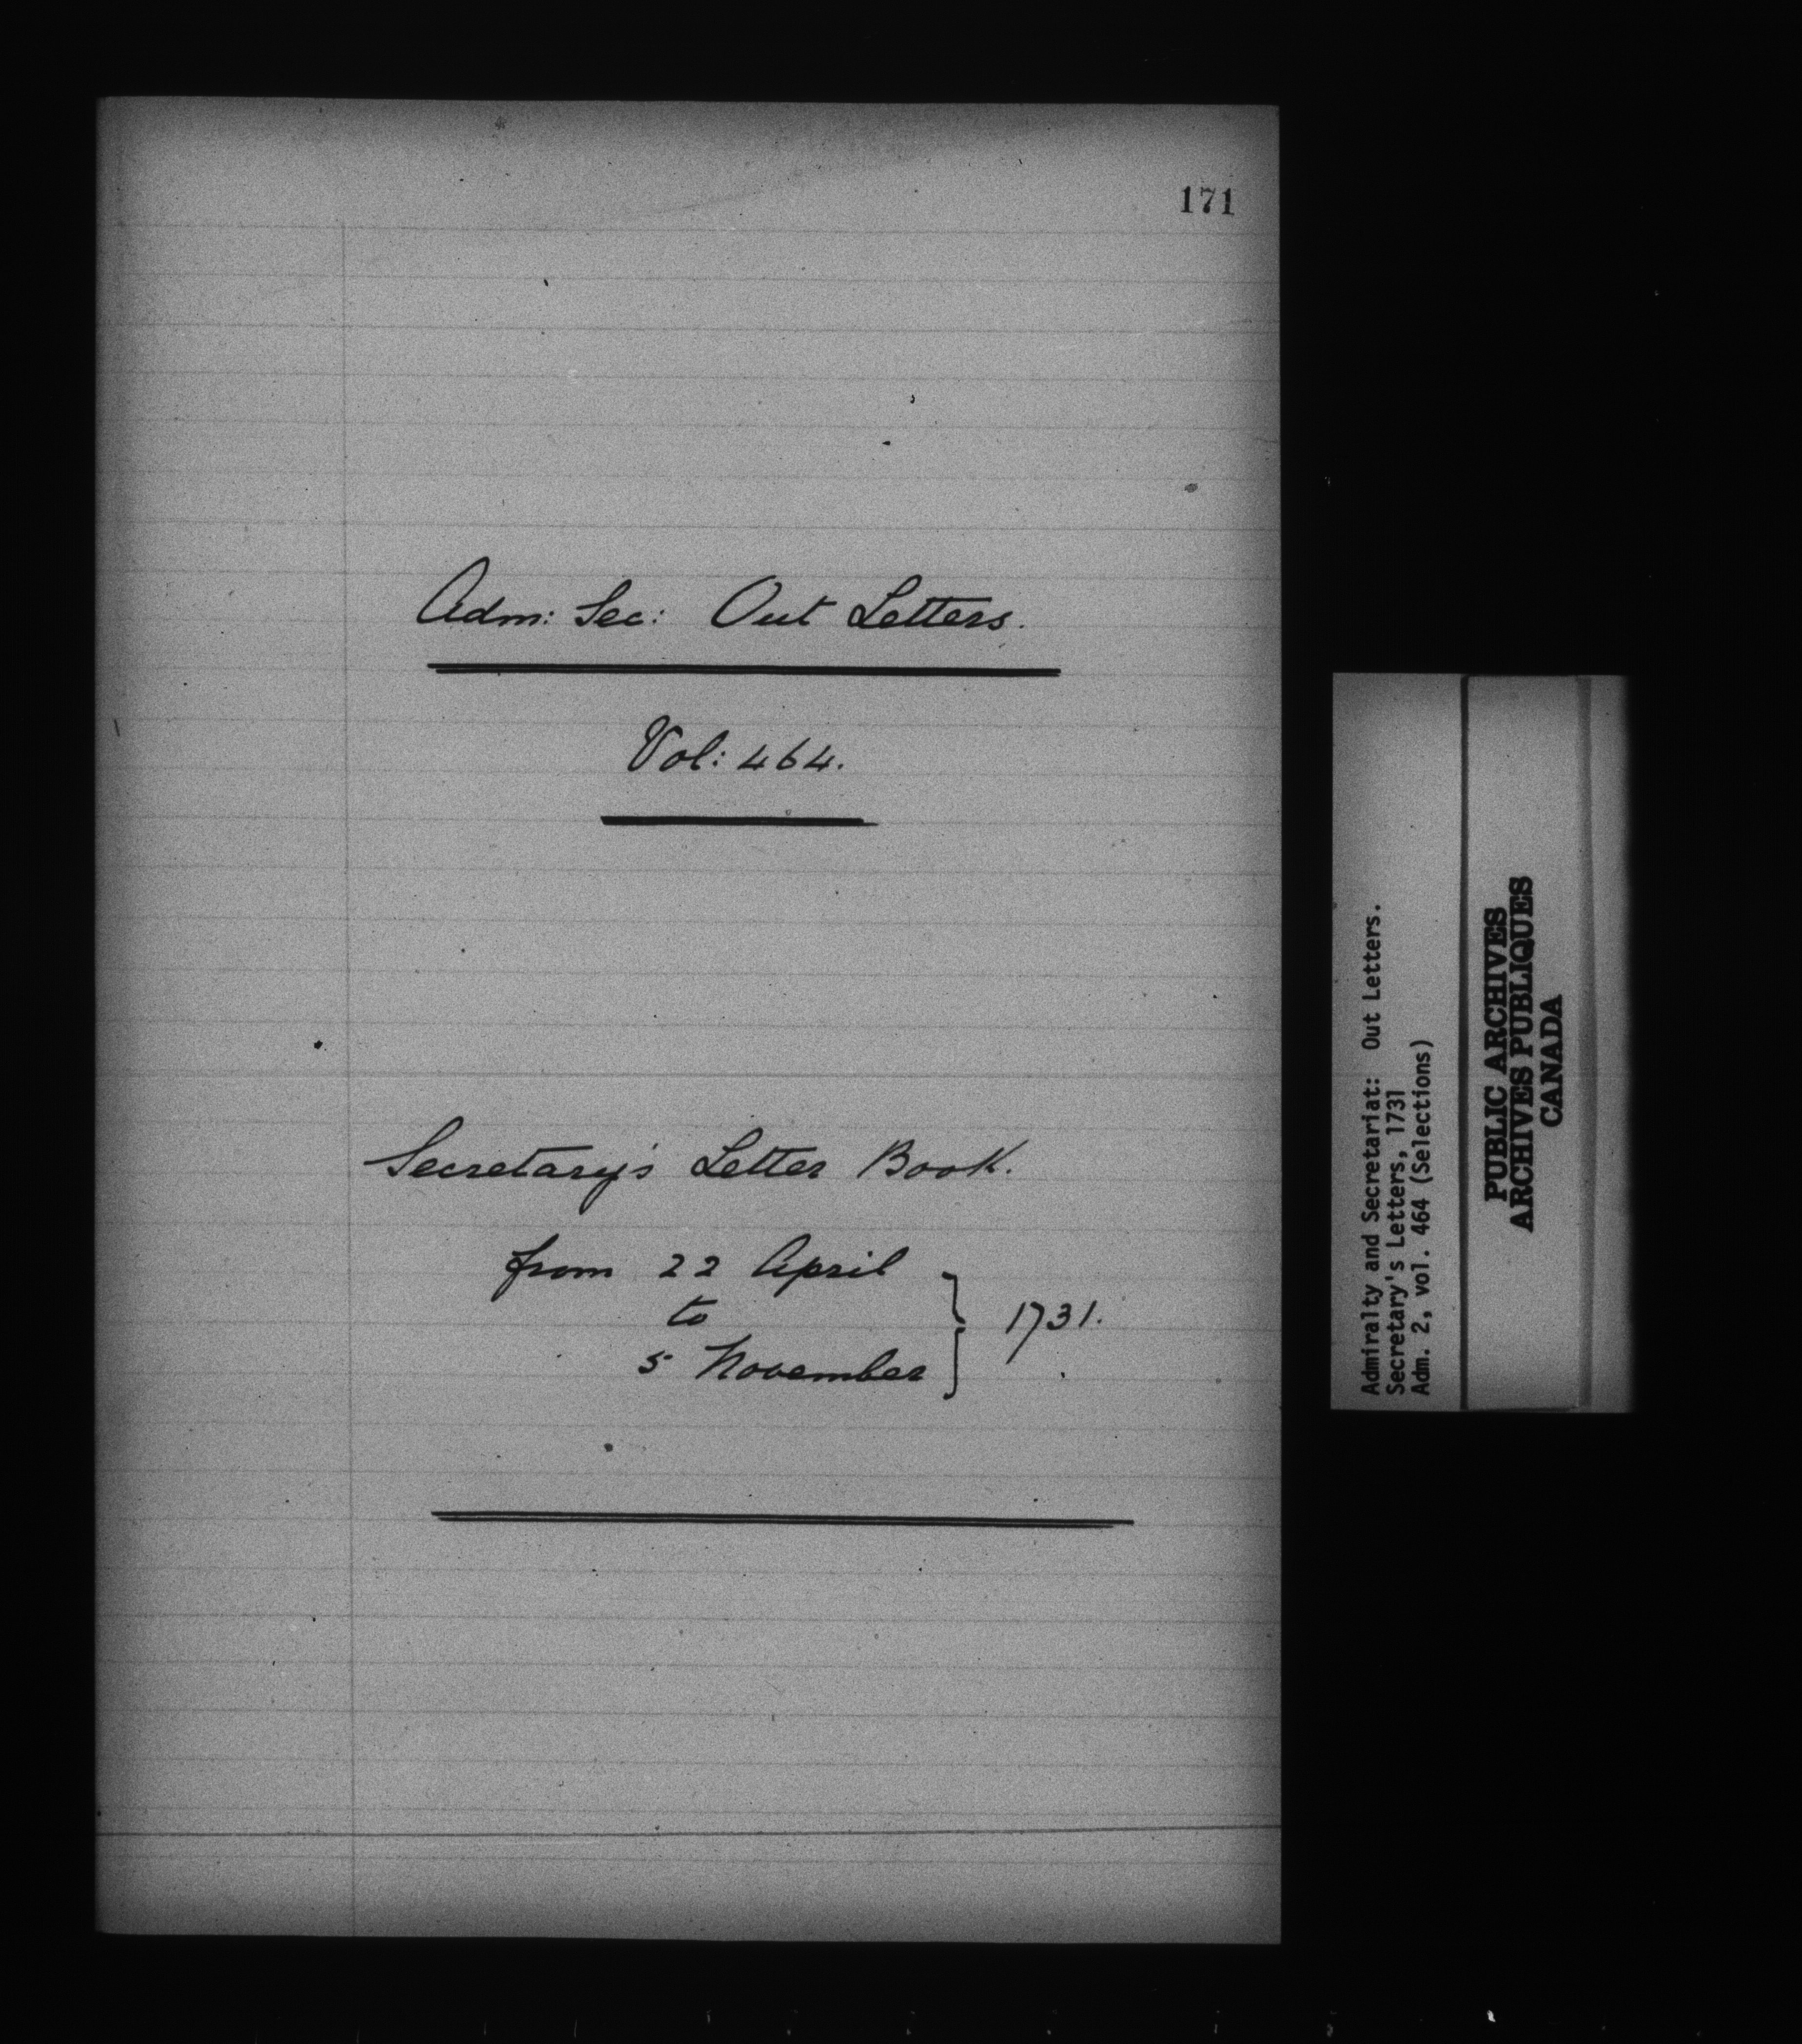 171
Adm: Sec: Out Letters.
Vol: 464.
Secretary's Letter Book.
from 22 April
to
5 November
1731.
Admiralty and Secretariat: Out Letters.
Secretary's Letters, 1731
Adm. 2, vol. 464 (Selections)
PUBLIC ARCHIVES
ARCHIVES PUBLIQUES
CANADA